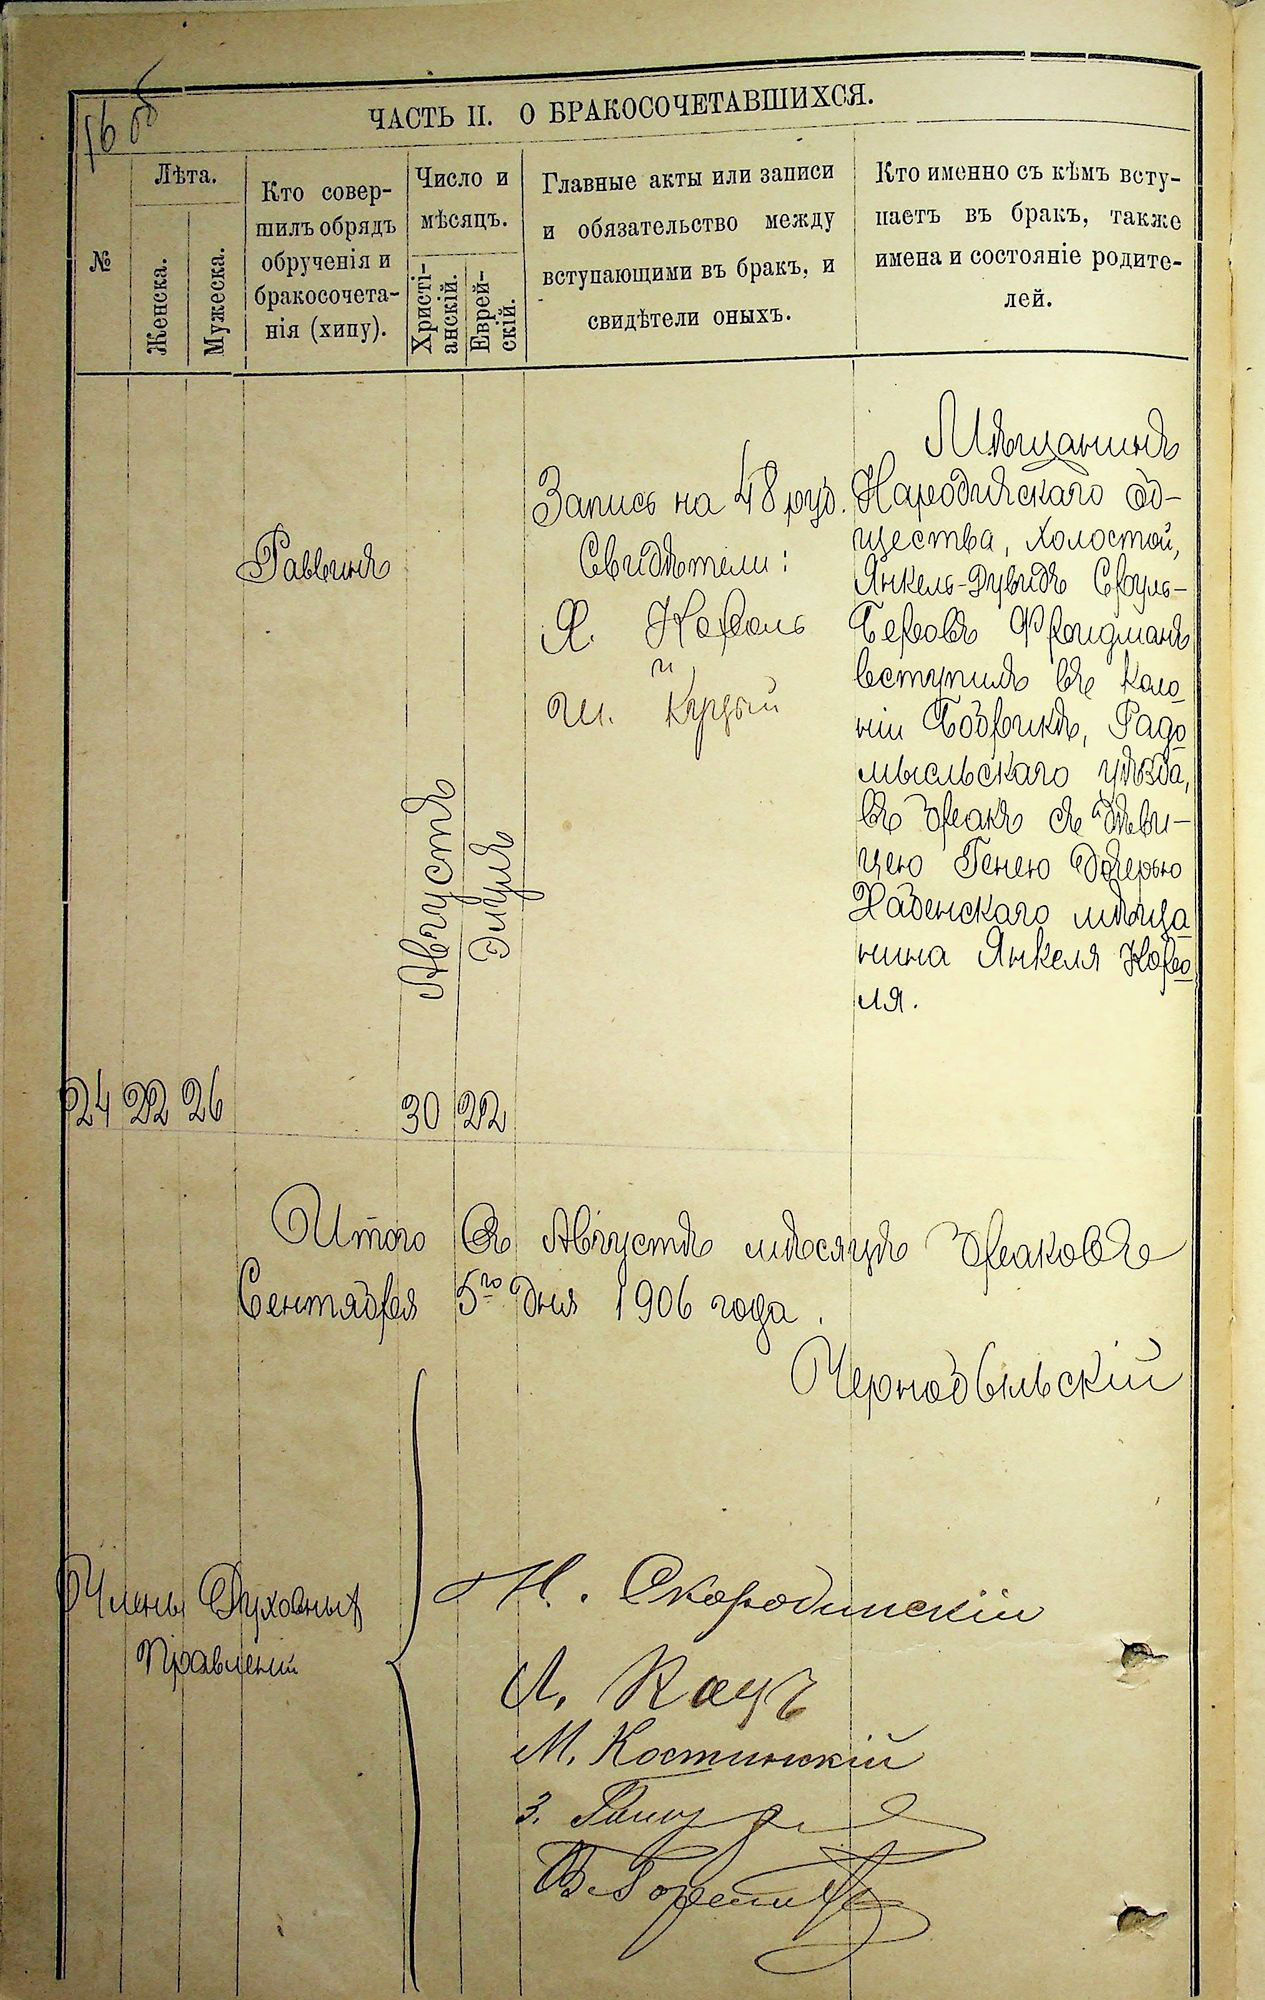 16 об
ЧАСТЬ II. О БРАКОСОЧЕТАВШИХСЯ.
№
Лѣта.
Женска.
Мужеска.
Кто совер-
шилъ обрядъ
обрученія и
бракосочета-
нія (хипу).
Число и
мѣсяцъ.
Христі-
анскій.
Еврей-
скій.
Главные акты или записи
и обязательство между
вступающими въ бракъ, и
свидѣтели оныхъ.
Кто именно съ кѣмъ всту-
паетъ въ бракъ, также
имена и состояніе родите-
лей.
24
22
26
Раввинъ
Августъ
30
Элуля
22
Запись на 48 руб.
Свидѣтели:
Я. Король
и
Ш. Куцый
Мѣщанинъ
Народичскаго об-
щества, холостой,
Янкель-Дувидъ Сруль-
Беровъ Фридманъ
вступилъ въ коло
ніи Бобрикъ, Радо
мысльскаго уѣзда,
въ бракъ съ дѣви-
цею Генею дочерью
Хабенскаго мѣща
нина Янкеля Коро
ля.
Итого въ Августѣ мѣсяцѣ браковъ
Сентября 5го дня 1906 года.
Чернобыльскій
Члены Духовныхъ
Правленій
Н. Скородинскій
Л. Кацъ
М. Костинскій
З.
В.